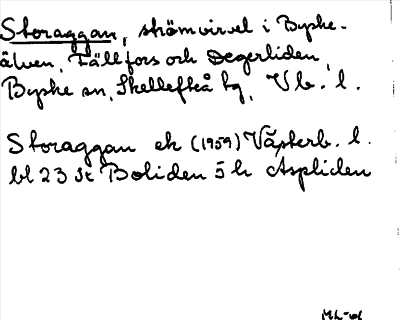 Storaggan, strömvirvel i Byske-
älven, Fällfors och Degerliden,
Byske sn, Skellefteå tg, Vb. l.
Storaggan ek (1959) Västerb. l.
bl 23 Sk Boliden 5 h Aspliden